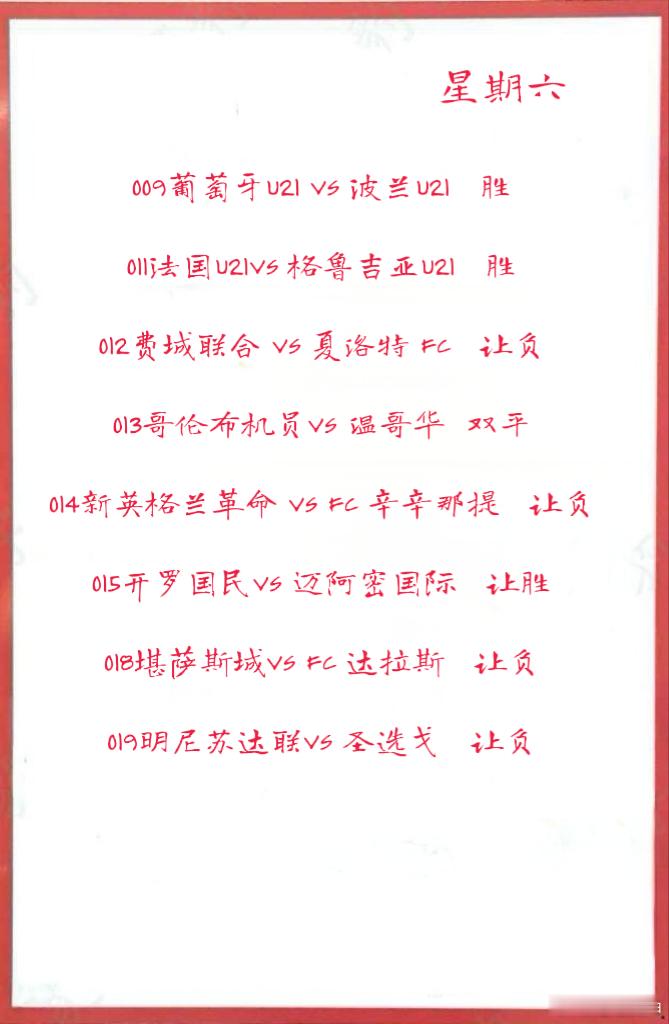 星期六
009葡萄牙U21 VS 波兰U21 胜
011法国U21VS 格鲁吉亚U21 胜
012费城联合 VS 夏洛特 FC 让负
013哥伦布机员VS 温哥华 双平
014新英格兰革命 VS FC 辛辛那提 让负
015开罗国民VS 迈阿密国际 让胜
018堪萨斯城VS FC 达拉斯 让负
019明尼苏达联VS 圣迭戈 让负